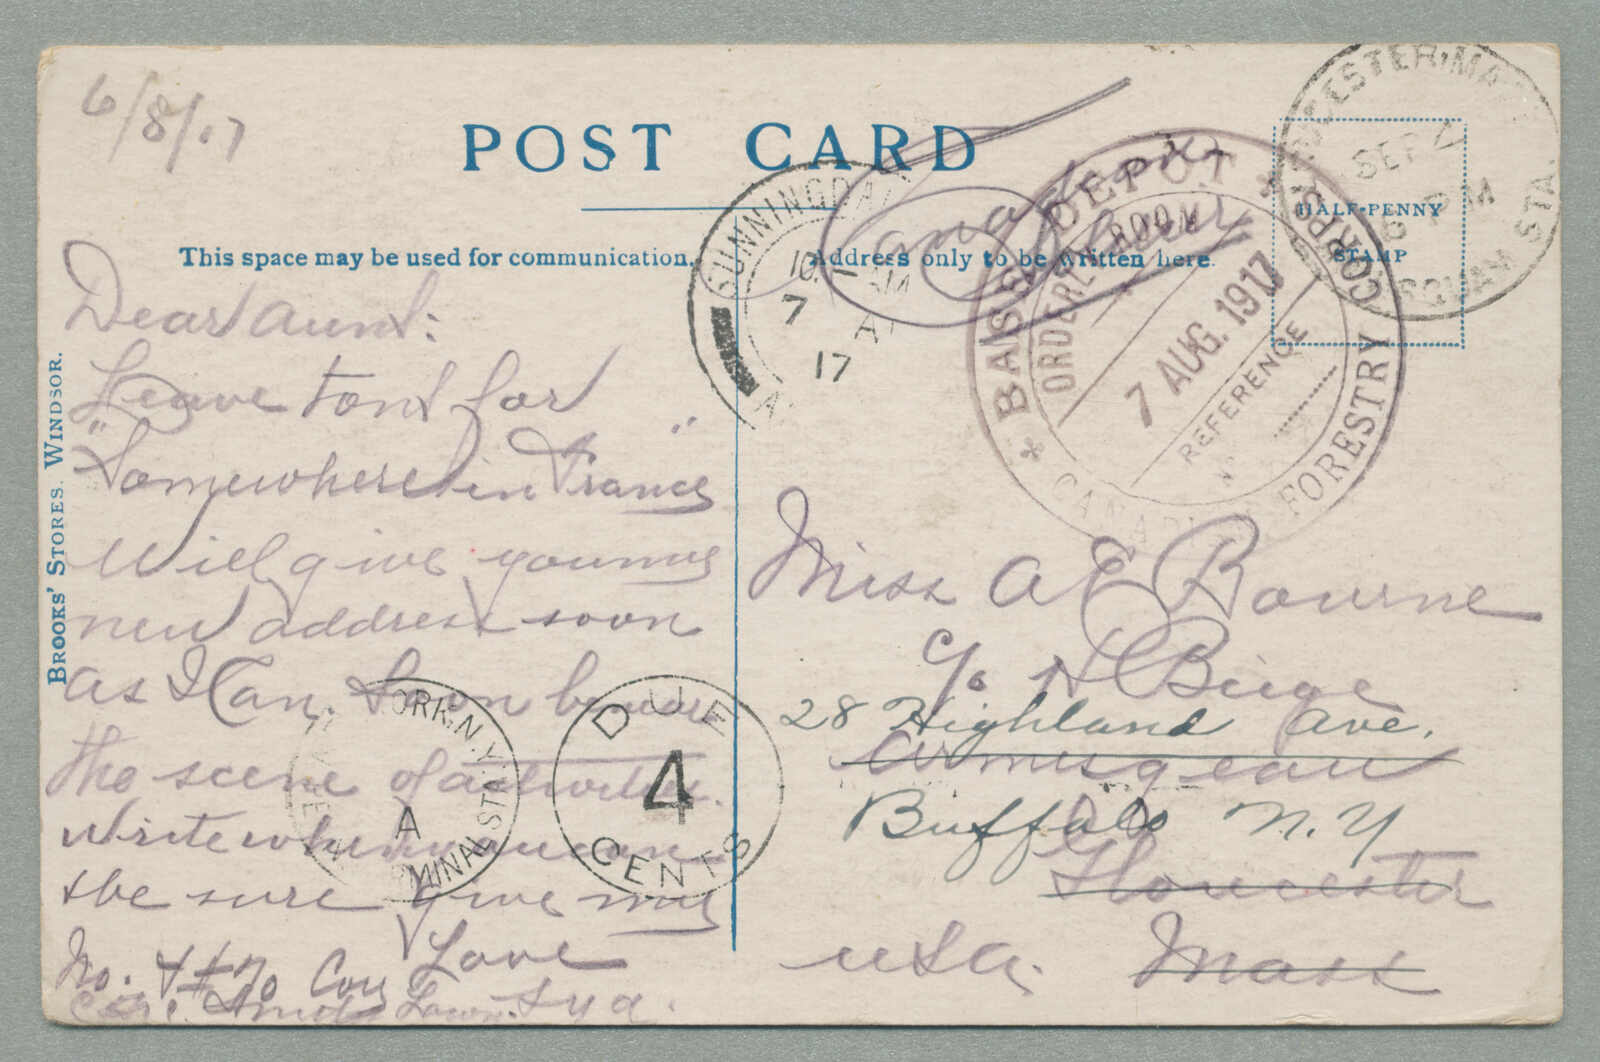 6/8/17
POST CARD
This space may be used for communication.
Address only to be written here.
HALF-PENNY
STAMP
BROOKS' STORES. WINDSOR.
Dear Aunt:
Leave tont for
"Somewhere in France"
Will give you my
new address soon
as I can. Soon be near
the scene of activities.
Write when you can
& be sure give my
Love
No. 70 Coy
Miss A E Bourne
c/o H Birge
28 Highland Ave.
Annisquam
Buffalo N.Y
Gloucester
USA. Mass
Canadian
SUNNINGDALE
10 AM
7 AU
17
BASE DEPOT
ORDERLY ROOM
7 AUG. 1917
REFERENCE
CANADIAN FORESTRY CORPS
GLOUCESTER, MASS.
SEP
6 PM
SQUAM STA.
N.Y.
A
TERMINAL STA
DUE
4
CENTS